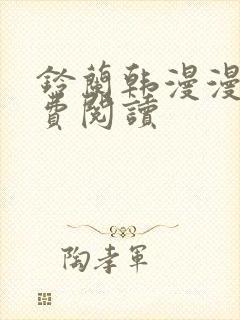 鈴蘭韩漫漫
費閱讀
陶孝軍